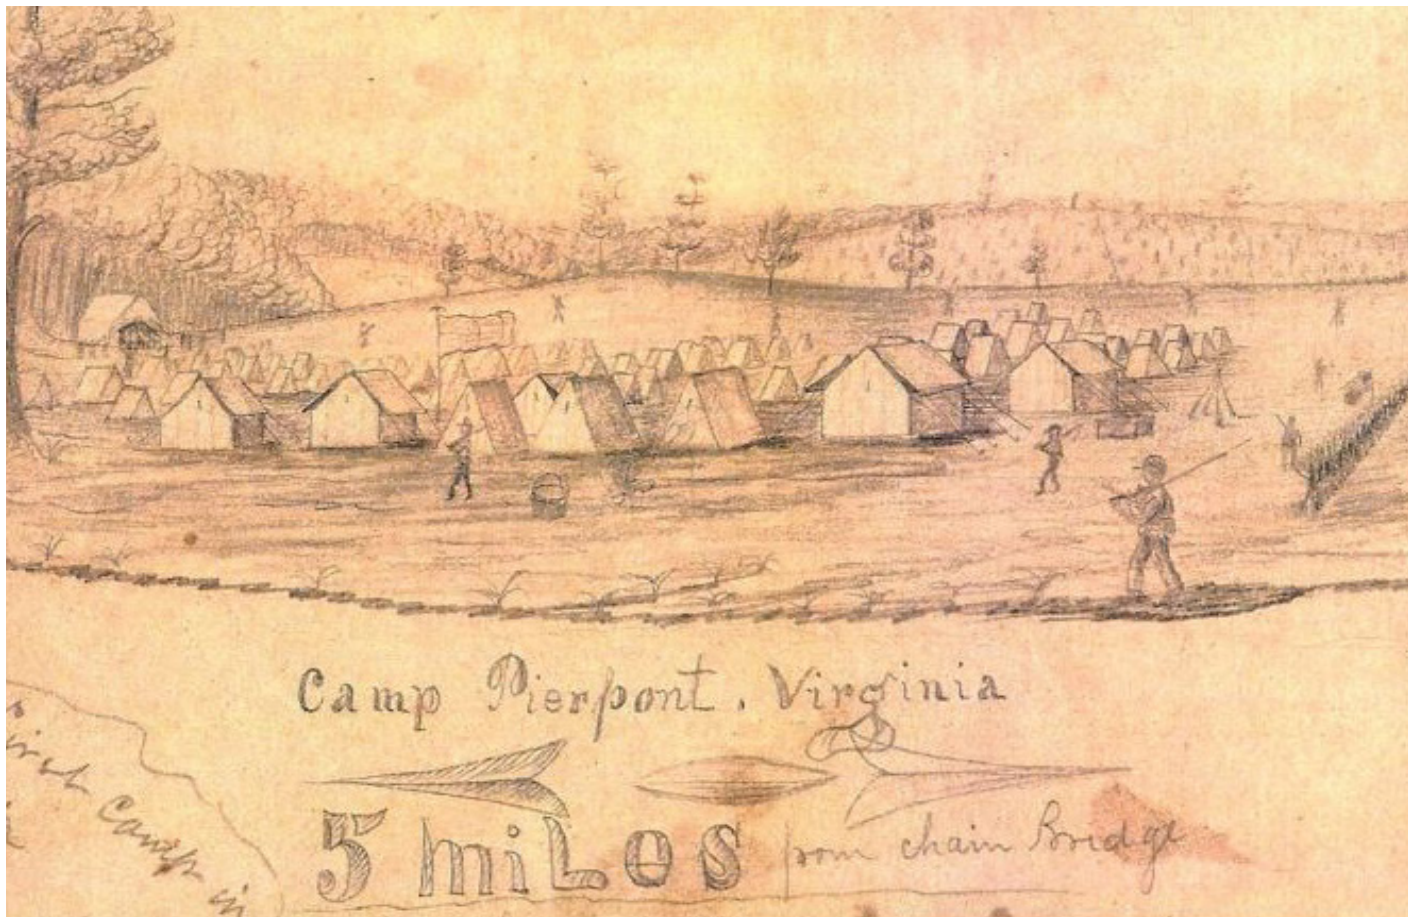 Camp Pierpont. Virginia
5 miles from chain Bridge
Camp in